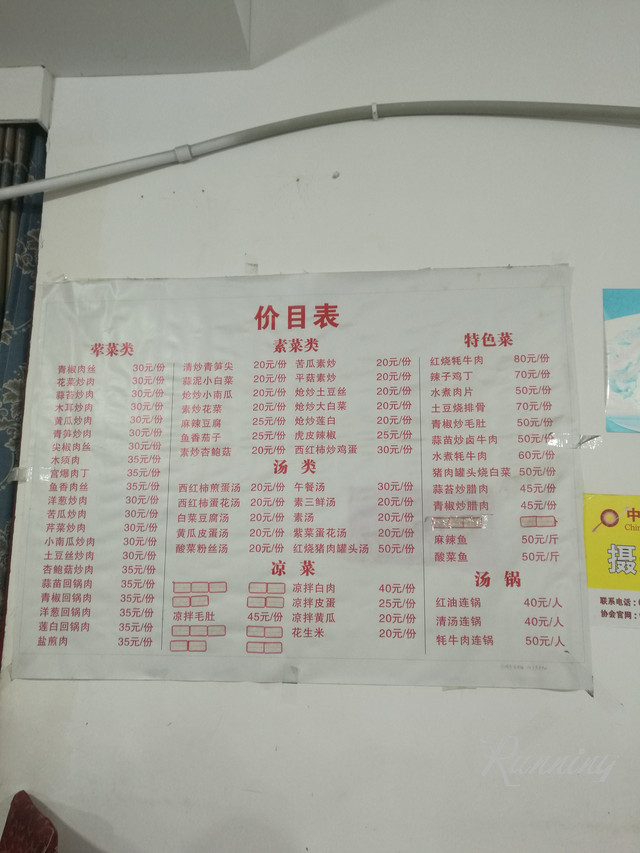 价目表
荤菜类
青椒肉丝 30元/份
花菜炒肉 30元/份
蒜苔炒肉 30元/份
木耳炒肉 30元/份
黄瓜炒肉 30元/份
青笋炒肉 30元/份
尖椒肉丝 30元/份
木须肉 35元/份
宫爆肉丁 35元/份
鱼香肉丝 35元/份
洋葱炒肉 30元/份
苦瓜炒肉 30元/份
芹菜炒肉 30元/份
小南瓜炒肉 30元/份
土豆丝炒肉 30元/份
杏鲍菇炒肉 35元/份
蒜苗回锅肉 35元/份
青椒回锅肉 35元/份
洋葱回锅肉 35元/份
莲白回锅肉 35元/份
盐煎肉 35元/份
素菜类
清炒青笋尖 20元/份 苦瓜素炒 20元/份
蒜泥小白菜 20元/份 平菇素炒 20元/份
炝炒小南瓜 20元/份 炝炒土豆丝 20元/份
素炒花菜 20元/份 炝炒大白菜 20元/份
麻辣豆腐 25元/份 炝炒莲白 20元/份
鱼香茄子 25元/份 虎皮辣椒 25元/份
素炒杏鲍菇 20元/份 西红柿炒鸡蛋 30元/份
汤 类
西红柿煎蛋汤 20元/份 午餐汤 30元/份
西红柿蛋花汤 20元/份 素三鲜汤 20元/份
白菜豆腐汤 20元/份 素汤 20元/份
黄瓜皮蛋汤 20元/份 紫菜蛋花汤 20元/份
酸菜粉丝汤 20元/份 红烧猪肉罐头汤 50元/份
凉 菜
凉拌白肉 40元/份
凉拌皮蛋 25元/份
凉拌毛肚 45元/份 凉拌黄瓜 20元/份
花生米 20元/份
特色菜
红烧牦牛肉 80元/份
辣子鸡丁 70元/份
水煮肉片 50元/份
土豆烧排骨 70元/份
青椒炒毛肚 50元/份
蒜苗炒卤牛肉 50元/份
水煮牦牛肉 60元/份
猪肉罐头烧白菜 50元/份
蒜苔炒腊肉 45元/份
青椒炒腊肉 45元/份
麻辣鱼 50元/斤
酸菜鱼 50元/斤
汤 锅
红油连锅 40元/人
清汤连锅 40元/人
牦牛肉连锅 50元/人
中
Chin
摄
联系电话:
协会官网:
Running